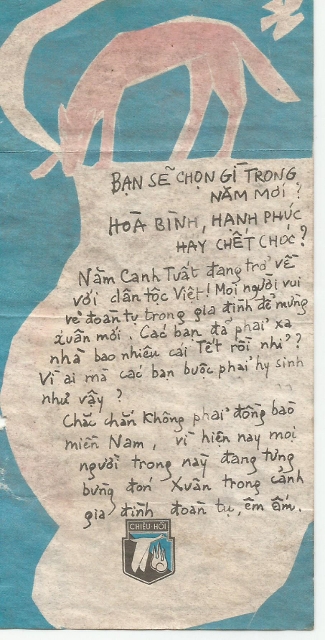 BẠN SẼ CHỌN GÌ TRONG
NĂM MỚI ?
HOÀ BÌNH, HẠNH PHÚC
HAY CHẾT CHÓC ?
Năm Canh Tuất đang trở về
với dân tộc Việt ! Mọi người vui
vẻ đoàn tụ trong gia đình để mừng
xuân mới. Các bạn đã phải xa
nhà bao nhiêu cái Tết rồi nhỉ ?
Vì ai mà các bạn buộc phải hy sinh
như vậy ?
Chắc chắn không phải đồng bào
miền Nam, vì hiện nay mọi
người trong này đang tưng
bừng đón Xuân trong cảnh
gia đình đoàn tụ, êm ấm.
CHIÊU-HỒI